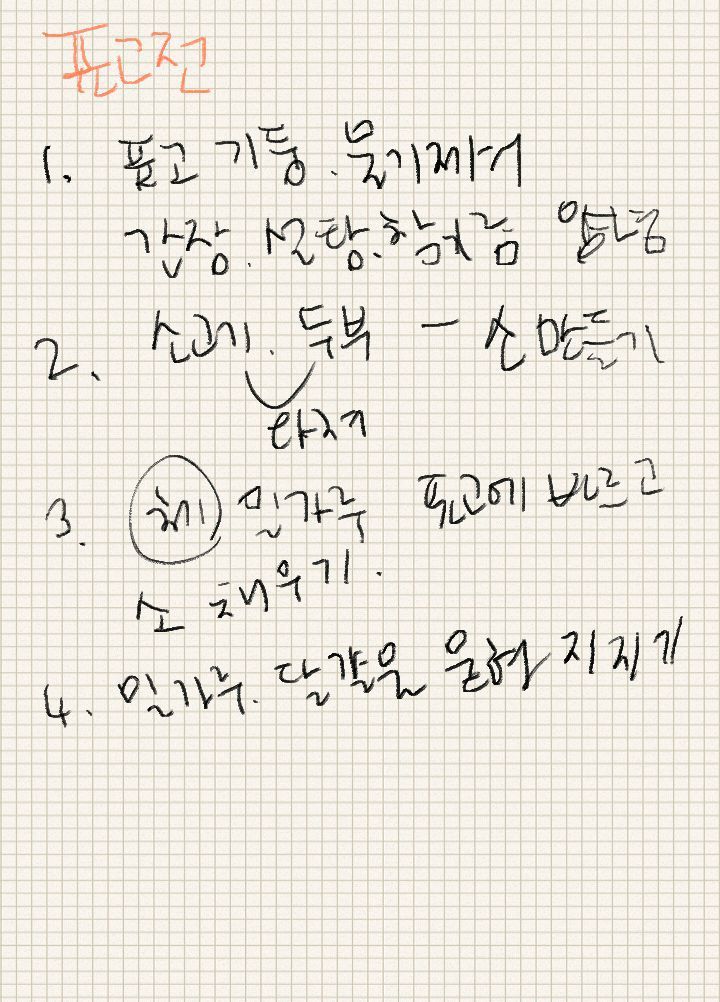 표고전
1. 표고 기둥. 물기제거
간장. 설탕. 참기름
2. 소고기. 두부 - 소 만들기
다지기
3. 체 밀가루 표고에 바르고
소 채우기.
4. 밀가루. 달걀을 입혀 지지기